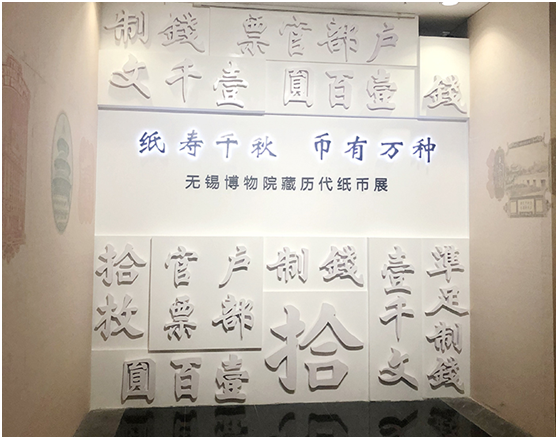 户部官票
制錢
壹百圓
壹千文
錢
纸寿千秋 币有万种
无锡博物院藏历代纸币展
準足制錢
壹千文
制錢
拾
户部
官票
拾枚
壹百圓